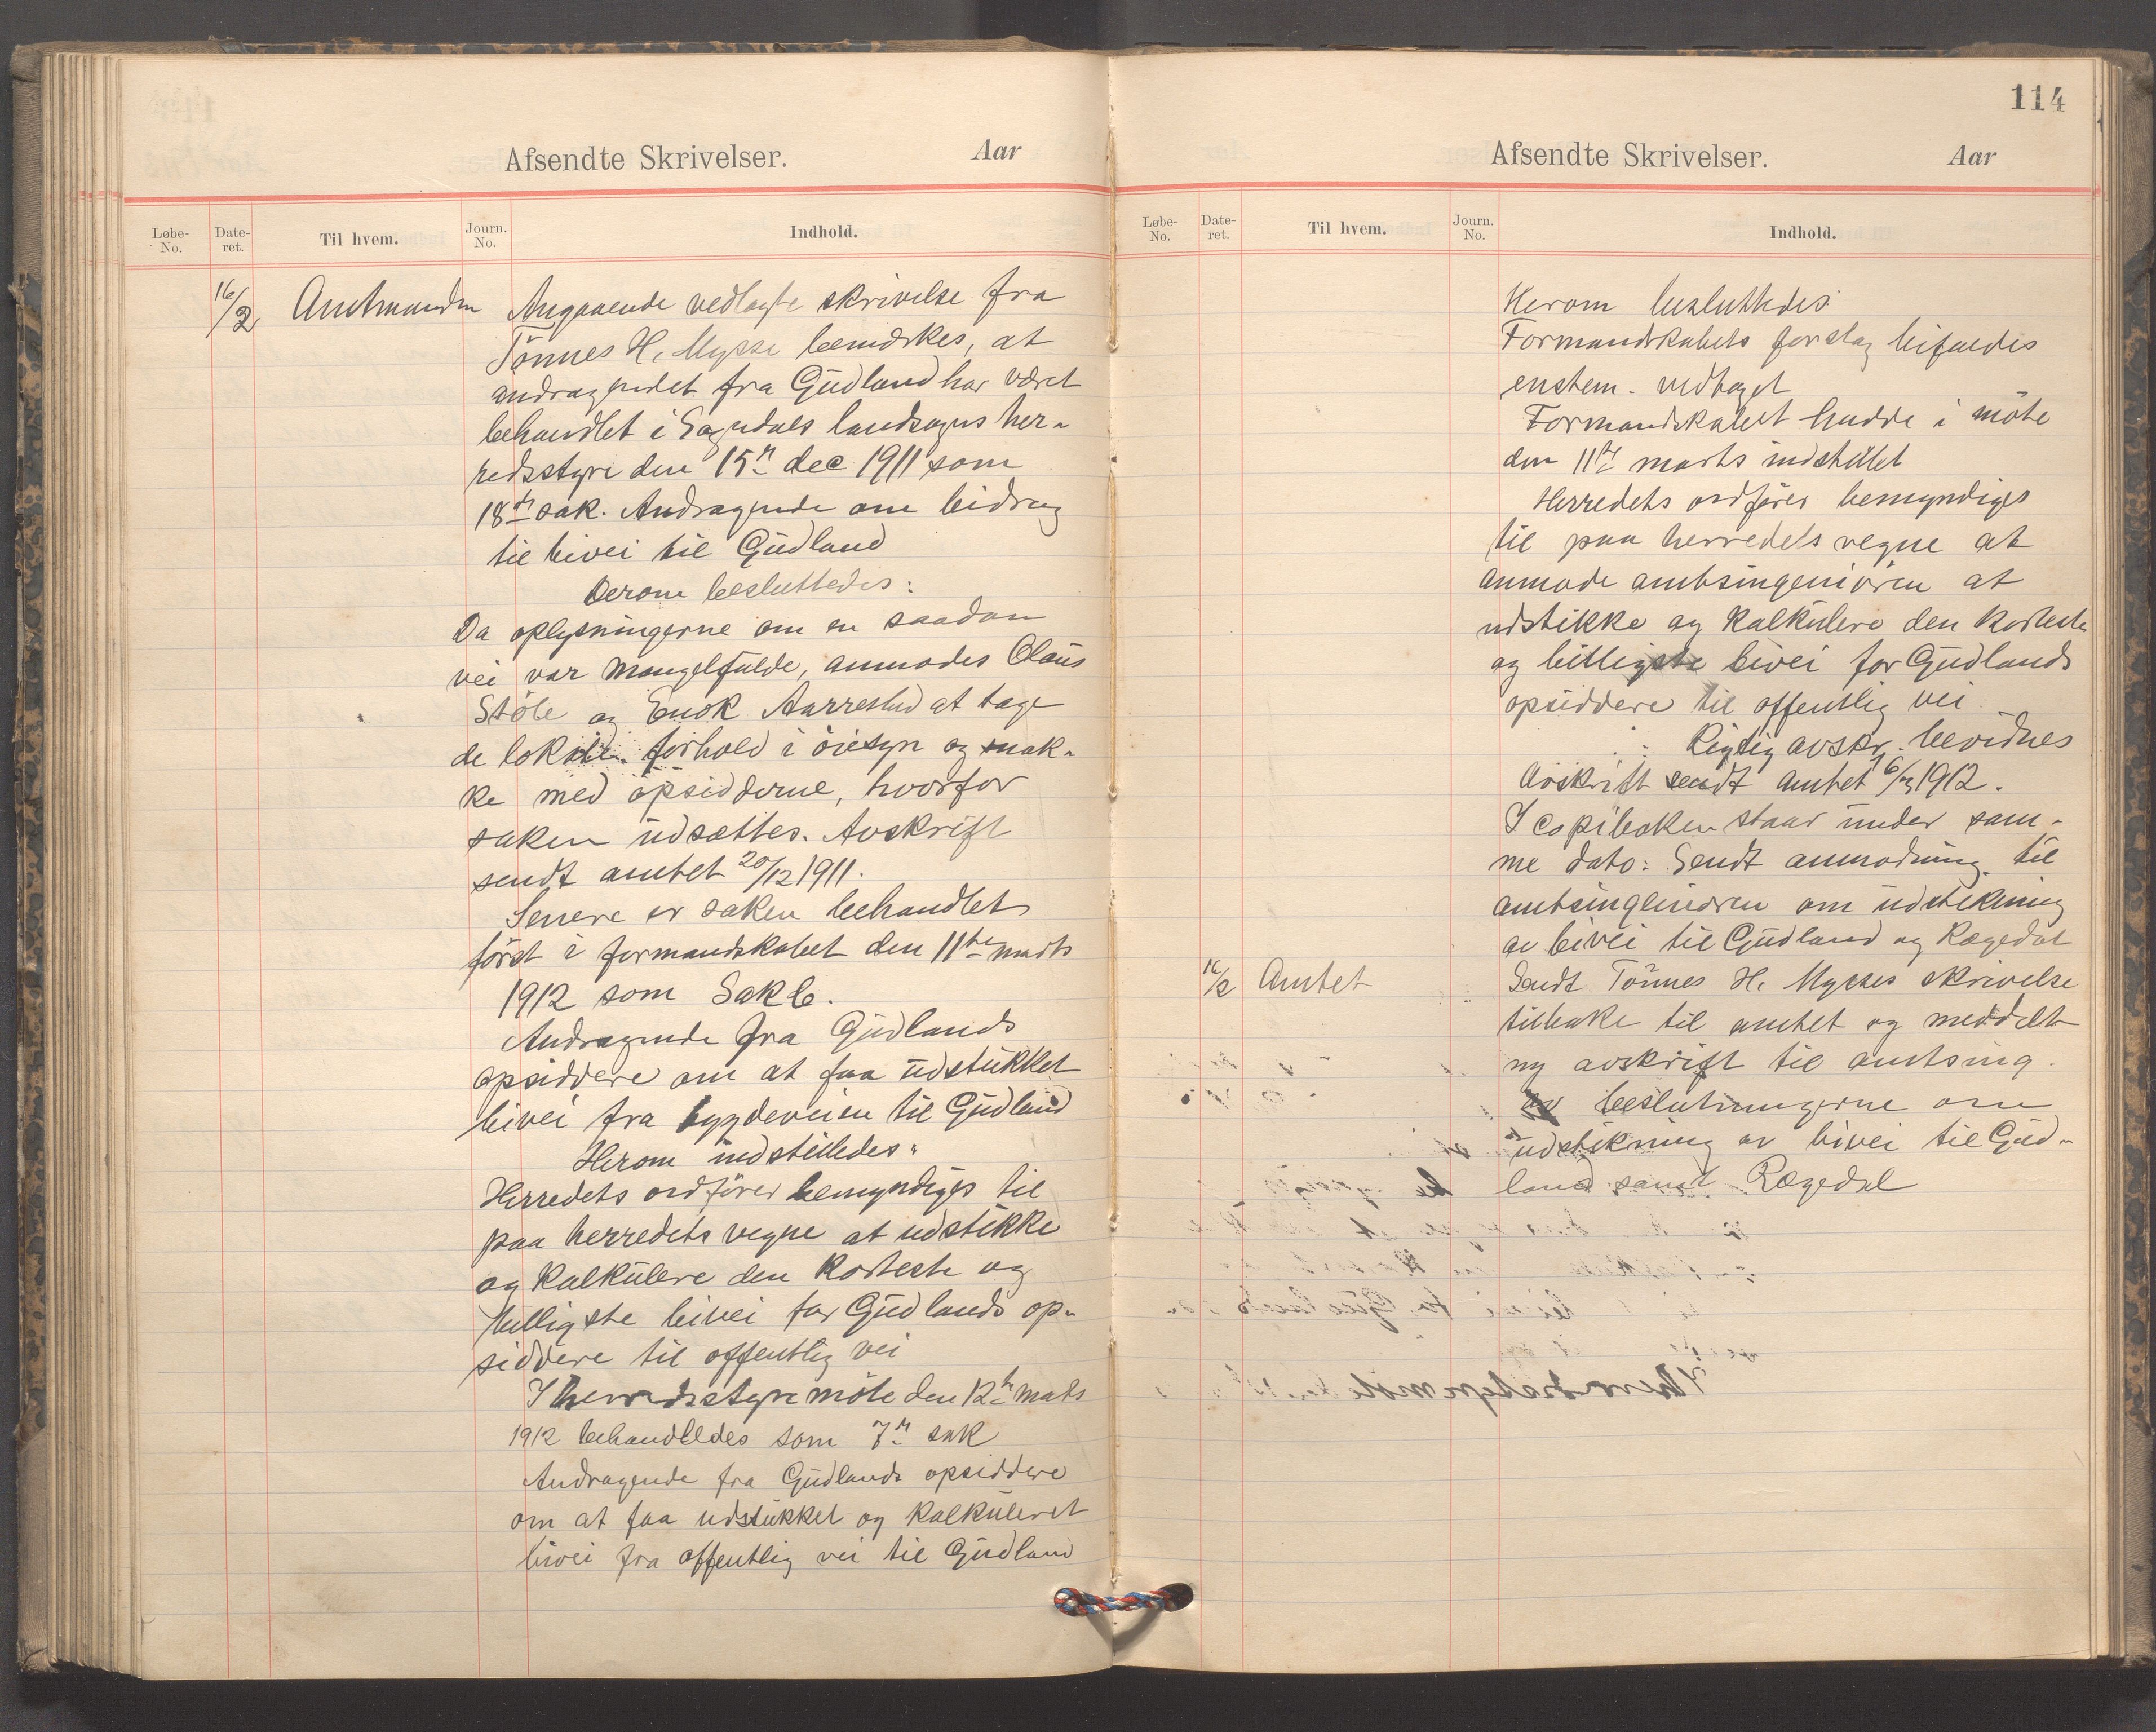 Afsendte Skrivelser. Aar
Løbe-No. Date-ret. Til hvem. Journ. No. Indhold.
16/2 Amtmanden Angaaende vedlagte skrivelse fra
Tönnes H. Mysse bemærkes, at
andragendet fra Gudland har været
behandlet i Sogndals landsogns her-
redsstyre den 15de dec 1911 som
18de sak. Andragende om bidrag
til bivei til Gudland
Derom besluttedes:
Da oplysningerne om en saadan
vei var mangelfulde, anmodes Claus
Stöle og Enok Aarrestad at tage
de lokale forhold i öiesyn og snak-
ke med opsidderne, hvorfor
saken udsættes. Avskrift
sendt amtet 20/12 1911.
Senere er saken behandlet
först i formandskabet den 11te marts
1912 som Sak 6.
Andragende fra Gudlands
opsiddere om at faa udstukket
bivei fra bygdeveien til Gudland
Herom indstilledes:
Herredets ordförer bemyndiges til
paa herredets vegne at udstikke
og kalkulere den korteste og
billigste bivei for Gudlands op-
siddere til offentlig vei
I herredsstyremöte den 12te marts
1912 behandledes som 7de sak
Andragende fra Gudlands opsiddere
om at faa udstukket og kalkuleret
bivei fra offentlig vei til Gudland
114
Afsendte Skrivelser. Aar
Løbe-No. Date-ret. Til hvem. Journ. No. Indhold.
Herom besluttedes
Formandskabets forslag bifaldes
enstem. vedtaget
Formandskabet hadde i möte
den 11te marts indstillet
Herredets ordförer bemyndiges
til paa herredets vegne at
anmode amtsingeniören at
udstikke og kalkulere den korteste
og billigste bivei for Gudlands
opsiddere til offentlig vei
Rigtig avskr. bevidnes
Avskrift sendt amtet 16/3 1912.
I copiboken staar under sam-
me dato: Sendt anmodning til
amtsingeniören om udstikning
av bivei til Gudland og Rægedal
16/2 Amtet Sendt Tönnes H. Mysses skrivelse
tilbake til amtet og meddelt
ny avskrift til amtsing.
av beslutningerne om
udstikning av bivei til Gud-
land samt Rægedal